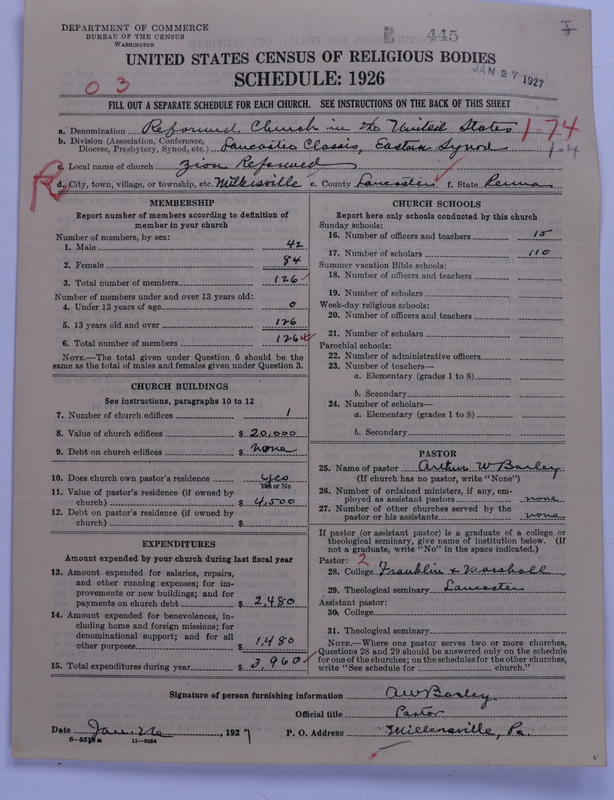 DEPARTMENT OF COMMERCE
BUREAU OF THE CENSUS
WASHINGTON
E 445
I
UNITED STATES CENSUS OF RELIGIOUS BODIES
JAN 27 1927
SCHEDULE: 1926
0 3
FILL OUT A SEPARATE SCHEDULE FOR EACH CHURCH. SEE INSTRUCTIONS ON THE BACK OF THIS SHEET
a. Denomination Reformed Church in the United States 1-74
b. Division (Association, Conference, Diocese, Presbytery, Synod, etc.) Lancaster Classis, Eastern Synod 1-4
c. Local name of church Zion Reformed
R
d. City, town, village, or township, etc. Millersville e. County Lancaster f. State Penna
MEMBERSHIP
Report number of members according to definition of
member in your church
Number of members, by sex:
1. Male 42
2. Female 84
3. Total number of members 126
Number of members under and over 13 years old:
4. Under 13 years of age 0
5. 13 years old and over 126
6. Total number of members 126
NOTE.—The total given under Question 6 should be
same as the total of males and females given under Question 3.
CHURCH BUILDINGS
See instructions, paragraphs 10 to 12
7. Number of church edifices 1
8. Value of church edifices $ 20,000
9. Debt on church edifices $ none
10. Does church own pastor's residence yes
Yes or No
11. Value of pastor's residence (if owned by
church) $ 4,500
12. Debt on pastor's residence (if owned by
church) $
EXPENDITURES
Amount expended by your church during last fiscal year
13. Amount expended for salaries, repairs,
and other running expenses; for im-
provements or new buildings; and for
payments on church debt $ 2,480
14. Amount expended for benevolences, in-
cluding home and foreign missions; for
denominational support; and for all
other purposes $ 1,480
15. Total expenditures during year $ 3,960
CHURCH SCHOOLS
Report here only schools conducted by this church
Sunday schools:
16. Number of officers and teachers 15
17. Number of scholars 110
Summer vacation Bible schools:
18. Number of officers and teachers
19. Number of scholars
Week-day religious schools:
20. Number of officers and teachers
21. Number of scholars
Parochial schools:
22. Number of administrative officers
23. Number of teachers—
a. Elementary (grades 1 to 8)
b. Secondary
24. Number of scholars—
a. Elementary (grades 1 to 8)
b. Secondary
PASTOR
25. Name of pastor Arthur W Barley
(If church has no pastor, write "None")
26. Number of ordained ministers, if any, em-
ployed as assistant pastors none
27. Number of other churches served by the
pastor or his assistants none
If pastor (or assistant pastor) is a graduate of a college or
theological seminary, give name of institution below. (If
not a graduate, write "No" in the space indicated.)
Pastor: 2
28. College Franklin & Marshall
29. Theological seminary Lancaster
Assistant pastor:
30. College
31. Theological seminary
NOTE.—Where one pastor serves two or more churches,
Questions 28 and 29 should be answered only on the schedule
for one of the churches; on the schedules for the other churches,
write "See schedule for church."
Signature of person furnishing information AW Barley
Official title Pastor
Date Jan. 26, 1927 P. O. Address Millersville, Pa.
8—5518a 11—9064